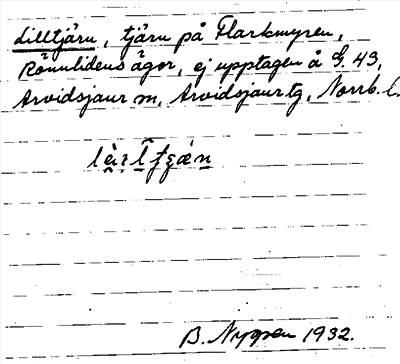 Lilltjärn, tjärn på Flarkmyren,
Rönnlidens ägor, ej upptagen å G. 43,
Arvidsjaur sn, Arvidsjaur tg, Norrb. l.
B. Nygren 1932.